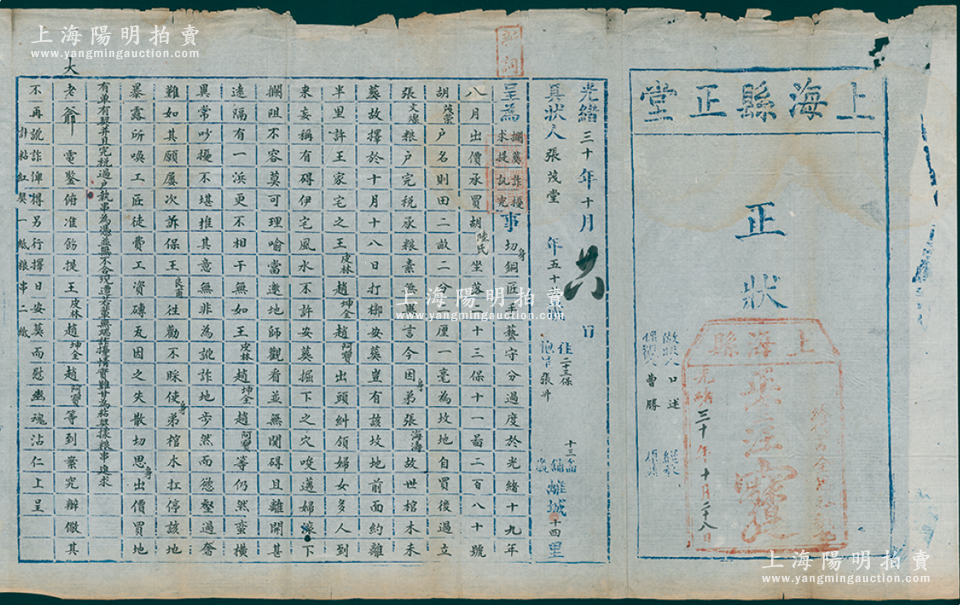 上海縣正堂
正狀
上海縣
光緒三十年十月二十八日
做狀人口述
曹勝
光緒三十年十月廿六日
具狀人張茂堂 年五十
住二十三保
十三圖
離城十四里
呈為攔葬詐擾求提訊究事切身銅匠手藝守分過度於光緒十九年
八月出價承買胡陸氏坐落二十三保十一啚二百八十號
胡 戶名則田二畝二分 厘一毫為坟地自買後過立
張文煥粮戶完税承粮素無異言今因身弟張海濤故世棺木未
葬故擇於十月十八日打梆安葬豈有該坟地前面約離
半里許王家宅之王皮林趙坤金趙阿寶出頭糾領婦女多人到
來妄稱有碍伊宅風水不許安葬掘下之穴唆邁婦滚下
攔阻不容莫可理喻當邀地師觀看並無関碍且離開甚
遠隔有一浜更不相干無如王皮林趙坤金趙阿寶等仍然蛮橫
異常吵擾不堪推其意無非為訛詐地步然而慾壑過奢
難如其願屡次訴保王 往勸不睬使身弟棺木扛停該地
暴露所喚工匠徒費工資磚瓦因之失散切思身出價買地
有單有契并且完税過戶執串為憑並無不合現遭 粘契據粮串追求
大老爺電鑒俯准飭提王皮林趙坤金趙阿寶等到案究辦儆其
不再訛詐俾得另行擇日安葬而慰幽魂沾仁上呈
計粘紅契一紙粮串二紙
上海陽明拍賣
www.yangmingauction.com
上海陽明拍賣
www.yangmingauction.com
上海陽明拍賣
www.yangmingauction.com